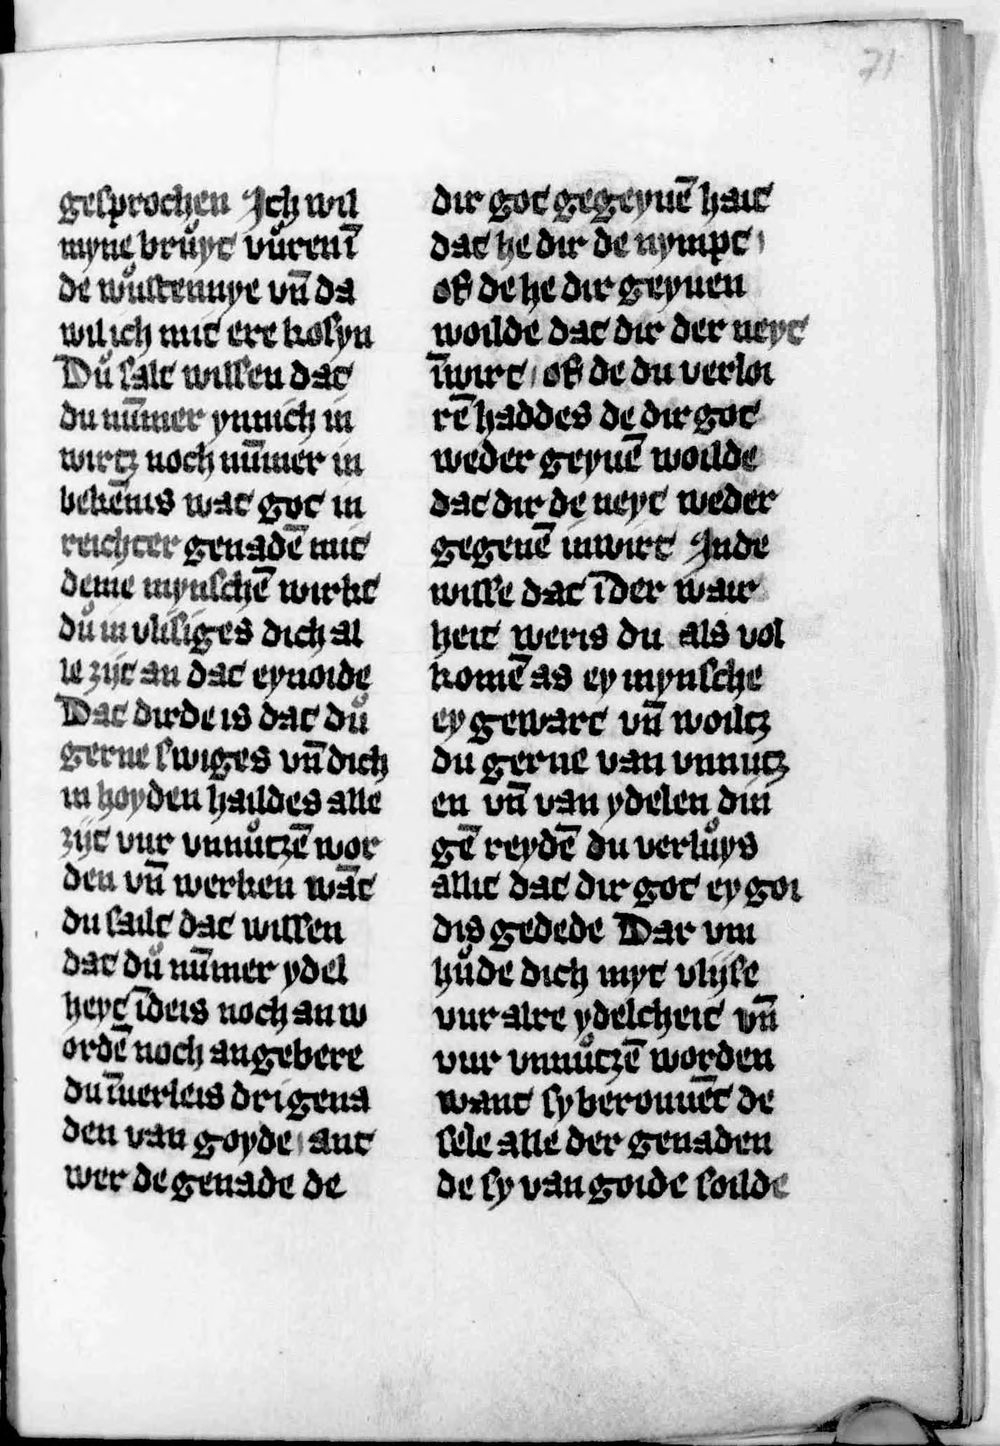 71
gesprochen Ich wil
myne bruͦyt vuͦren ī
de wuͦstennye vn̄ da
wil ich mit ere kosyn
Duͦ salt wissen dat
du nūmer ynnich in
wirtz noch nūmer in
bekēnis wat got in
reichter genadē mit
deme mynschē wirkt
duͦ in vlisiges dich al
le zijt an dat eynoide
Dat dirde is dat duͦ
gerne swiges vn̄ dich
in hoyden haildes alle
zijt vur vnnuͦtzē wor
den vn̄ werken wāt
du sailt dat wissen
dat duͦ nūmer ydel
heyt īdeis noch an w
ordē noch an gebere
du īuerleis dri gena
den van goyde ant
wer de genade de
dir got gegeynē hait
dat he dir de nympt
of de he dir geynen
woilde dat dir der neyt
īwirt of de du verloi
rē haddes de dir got
weder geynē woilde
dat dir de neyt weder
gegenē inwirt Inde
wisse dat ī der wair
heit weris du als vol
komē as ey mynsche
ey gewart vn̄ woiltz
du gerne van vnnutz
en vn̄ van ydelen din
gē reydē du verluͦys
allit dat dir got ey goi
dis gedede Dar vm
huͦde dich myt vlijse
vur alre ydelcheit vn̄
vur vnnuͦtzē worden
want sy berouuēt de
sele alle der genaden
de sy van goide soilde